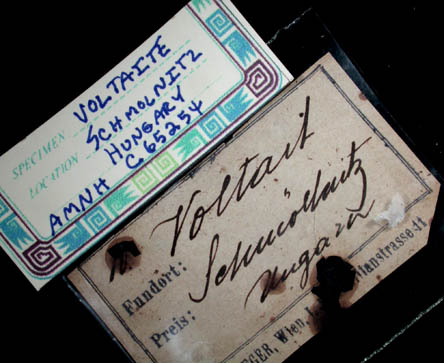 SPECIMEN VOLTAITE
LOCATION SCHMOLNITZ
HUNGARY
AMNH C65254
Voltait
Fundort: Schmöllnitz
Preis: Ungarn
Wien,